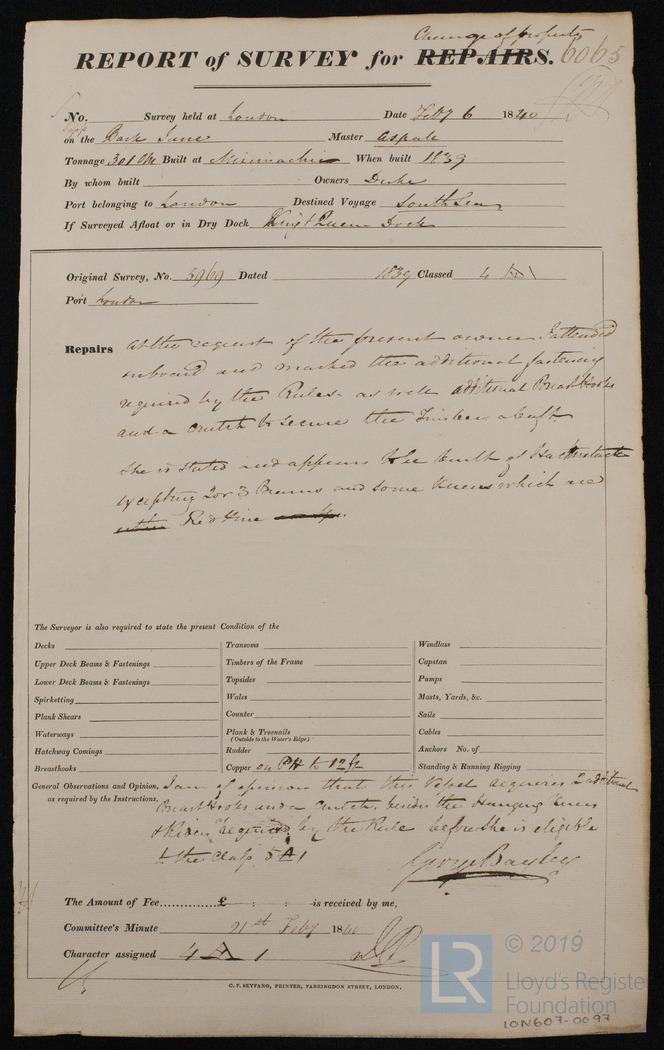 Change of property
REPORT of SURVEY for REPAIRS. 6065
No. Survey held at London Date Feby 6 1840
on the Bark Jane Master Aspale
Tonnage 301 Built at Miramachi When built 1839
By whom built Owners Duke
Port belonging to London Destined Voyage South Sea
If Surveyed Afloat or in Dry Dock Dock
Original Survey, No. 5969 Dated 1839 Classed 4 A 1
Port London
Repairs At the request of the present owner I attended
onboard and marked the additional fastening
required by the Rules as well additional Breast Hooks
and a crutch to secure the Timbers abaft
She is stated and appears to be built of Hackmatack
excepting 2 or 3 Beams and some Knees which are
Red Pine
The Surveyor is also required to state the present Condition of the
Decks Transoms Windlass
Upper Deck Beams & Fastenings Timbers of the Frame Capstan
Lower Deck Beams & Fastenings Topsides Pumps
Spirketting Wales Masts, Yards, &c.
Plank Shears Counter Sails
Waterways Plank & Treenails Cables
(Outside to the Water's Edge)
Hatchway Comings Rudder Anchors No. of
Breasthooks Copper on PH to 12 ft Standing & Running Rigging
General Observations and Opinion, I am of opinion that this Vessel requires 2 additional
as required by the Instructions, Breast Hooks and a Crutch, besides the Hanging Knees
& Riders required by the Rule before she is eligible
to the Class 5 A 1
George Bayley
The Amount of Fee............£ : : -is received by me,
Committee's Minute 21st Feby 1840
Character assigned 4 A 1
C. F. SEYFANG, PRINTER, FARRINGDON STREET, LONDON.
LR © 2019
Lloyd's Register
Foundation
LON607-0097